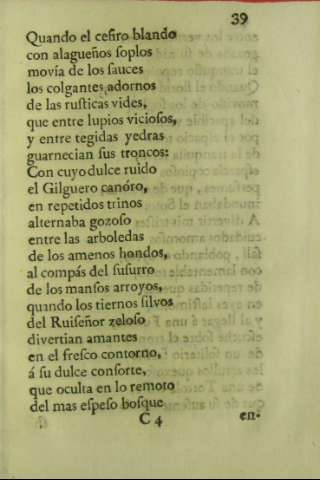 39
Quando el cefiro blando
con alagueños ſoplos
movía de los ſauces
los colgantes adornos
de las ruſticas vides,
que entre lupios vicioſos,
y entre tegidas yedras
guarnecian ſus troncos:
Con cuyo dulce ruido
el Gilguero canóro,
en repetidos trinos
alternaba gozoſo
entre las arboledas
de los amenos hondos,
al compás del ſuſurro
de los manſos arroyos,
quando los tiernos ſilvos
del Ruiſeñor zeloſo
divertian amantes
en el freſco contorno,
á ſu dulce conſorte,
que oculta en lo remoto
del mas eſpeſo boſque
C 4 en-